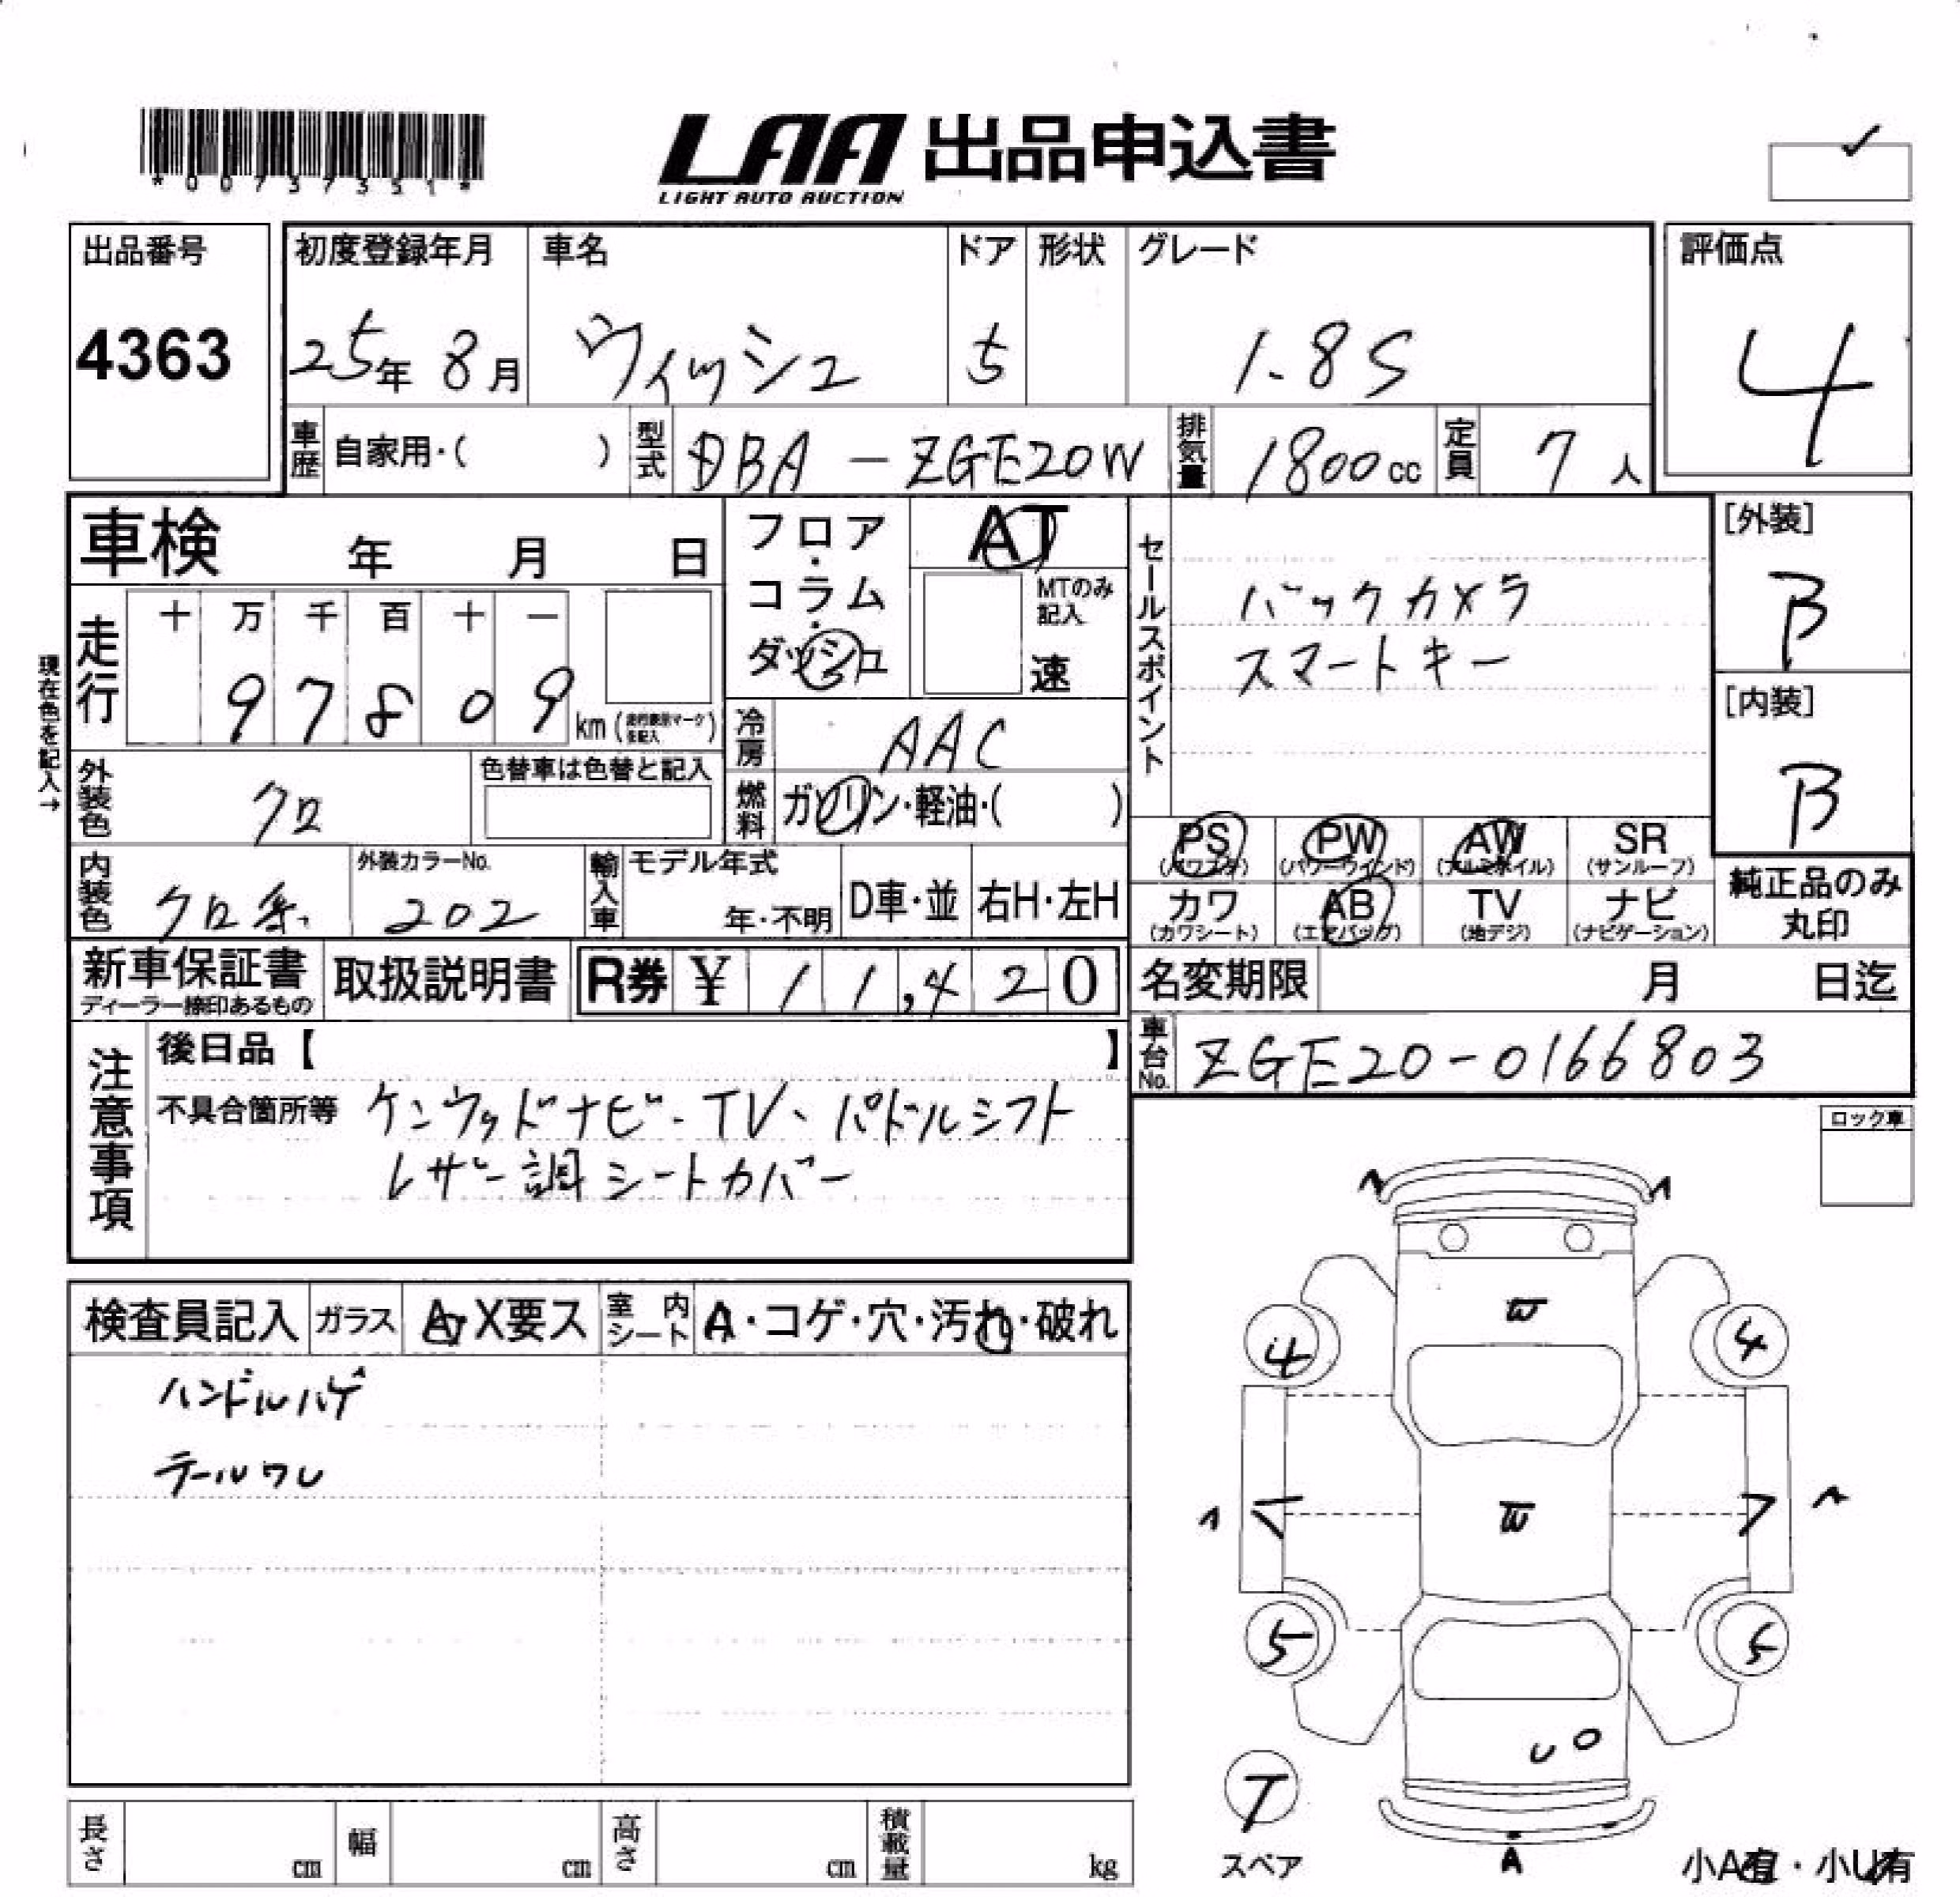 *00737351*
LAA 出品申込書
LIGHT AUTO AUCTION
出品番号
4363
初度登録年月
25年 8月
車名
ウィッシュ
ドア
5
形状
グレード
1.8S
評価点
4
車歴 自家用・( )
型式 DBA-ZGE20W
排気量 1800cc
定員 7人
車検 年 月 日
フロア・コラム・ダッシュ
AT
MTのみ記入
速
セールスポイント
バックカメラ
スマートキー
[外装]
B
[内装]
B
現在色を記入→
走行
十 万 千 百 十 一
97809 km
冷房 AAC
外装色 クロ
色替車は色替と記入
燃料 ガソリン・軽油・( )
内装色 クロ系
外装カラーNo.
202
輸入車 モデル年式
年・不明
D車・並
右H・左H
PS PW AW SR
(パワステ) (パワーウインド) (アルミホイル) (サンルーフ)
カワ AB TV ナビ
(カワシート) (エアバッグ) (地デジ) (ナビゲーション)
純正品のみ
丸印
新車保証書
ディーラー捺印あるもの
取扱説明書
R券 ¥ 11,420
名変期限 月 日迄
車台No. ZGE20-0166803
注意事項
後日品【 】
不具合箇所等 ケンウッドナビ・TV、パドルシフト
レザー調シートカバー
ロック車
検査員記入 ガラス A・X要ス 室内シート A・コゲ・穴・汚れ・破れ
ハンドルハゲ
テールワレ
A
A
W
4
4
A
W
A
5
5
U
U
T
スペア
A
小A有・小U有
長さ cm
幅 cm
高さ cm
積載量 kg